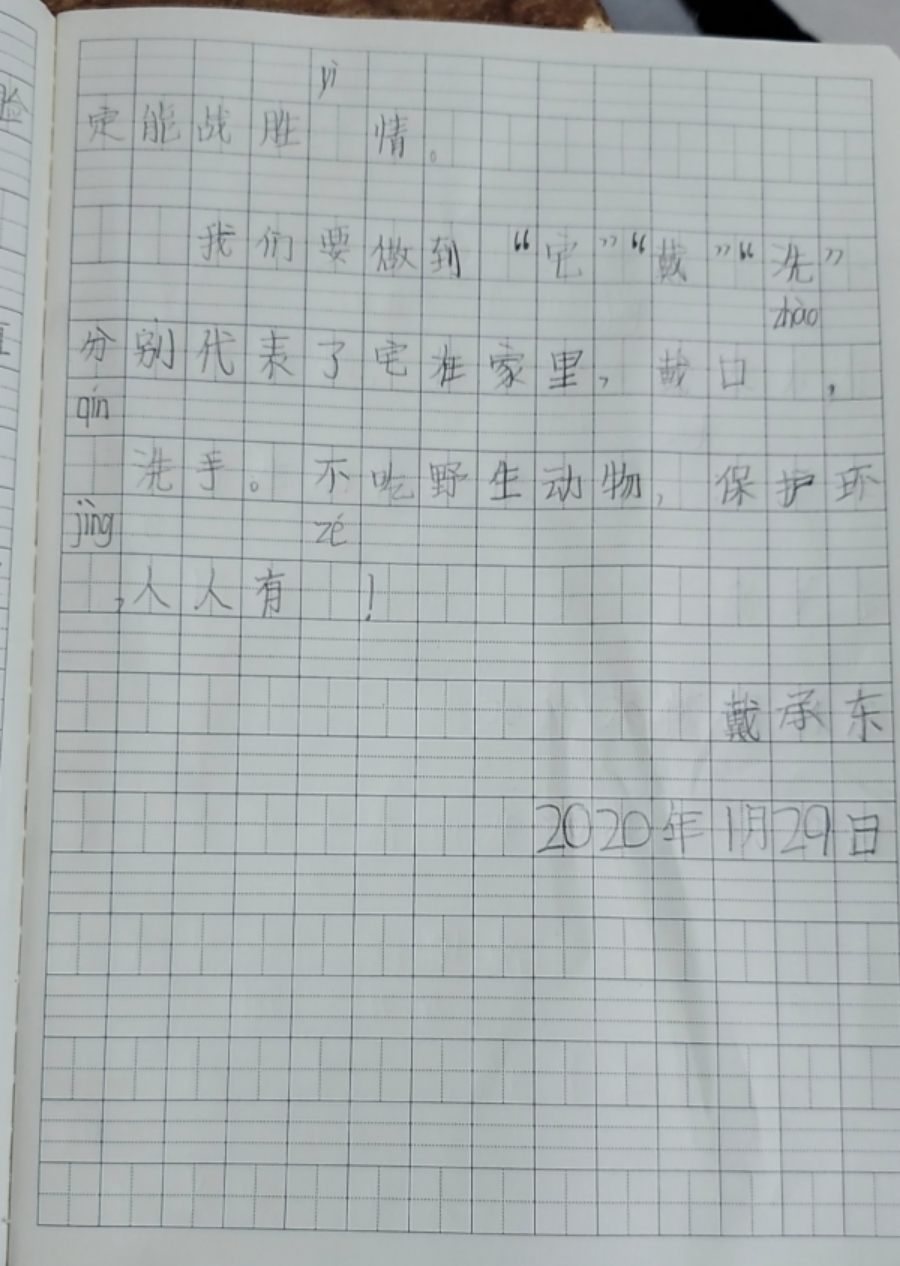 yì
定能战胜 情。
我们要做到“宅”“戴”“洗”
zhào
分别代表了宅在家里，戴口 ，
qín
洗手。不吃野生动物，保护环
jìng zé
，人人有 ！
戴承东
2020年1月29日